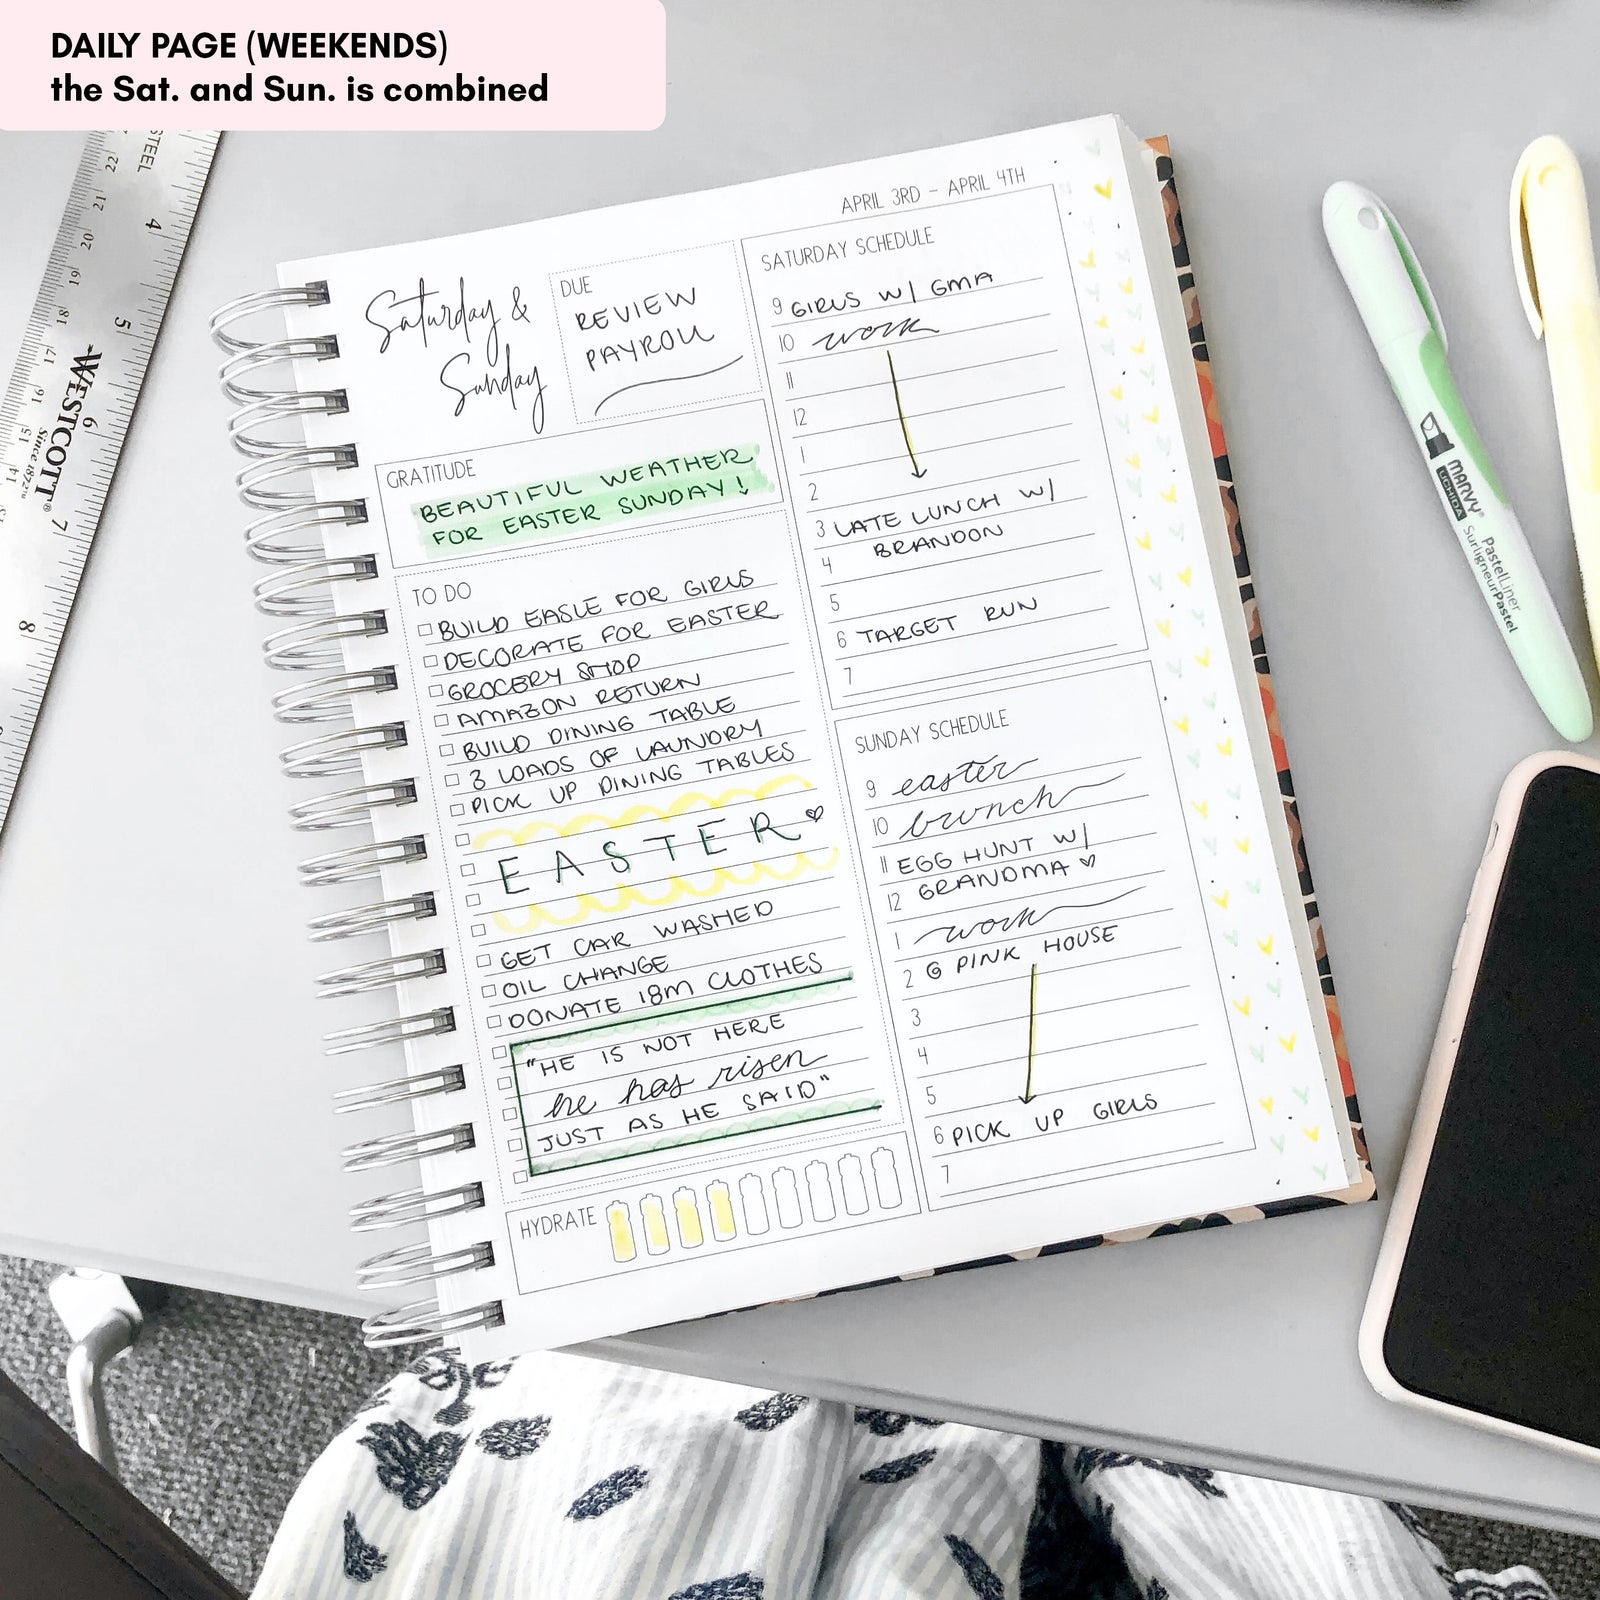 DAILY PAGE (WEEKENDS)
the Sat. and Sun. is combined
APRIL 3RD - APRIL 4TH
Saturday &
Sunday
DUE
REVIEW
PAYROLL
GRATITUDE
BEAUTIFUL WEATHER
FOR EASTER SUNDAY!
TO DO
BUILD EASLE FOR GIRLS
DECORATE FOR EASTER
GROCERY SHOP
AMAZON RETURN
BUILD DINING TABLE
3 LOADS OF LAUNDRY
PICK UP DINING TABLES
EASTER
GET CAR WASHED
OIL CHANGE
DONATE 18M CLOTHES
"HE IS NOT HERE
he has risen
JUST AS HE SAID"
HYDRATE
SATURDAY SCHEDULE
9 GIRLS W/ GMA
10 work
11
12
1
2
3 LATE LUNCH W/
BRANDON
4
5
6 TARGET RUN
7
SUNDAY SCHEDULE
9 easter
10 brunch
11 EGG HUNT W/
GRANDMA
12
1 work
2 @ PINK HOUSE
3
4
5
6 PICK UP GIRLS
7
STEEL
WESTCOTT®
Since 1872
4
5
6
7
8
22
21
20
19
18
17
16
15
14
13
MARVY®
UCHIDA
PastelLiner
SurligneurPastel